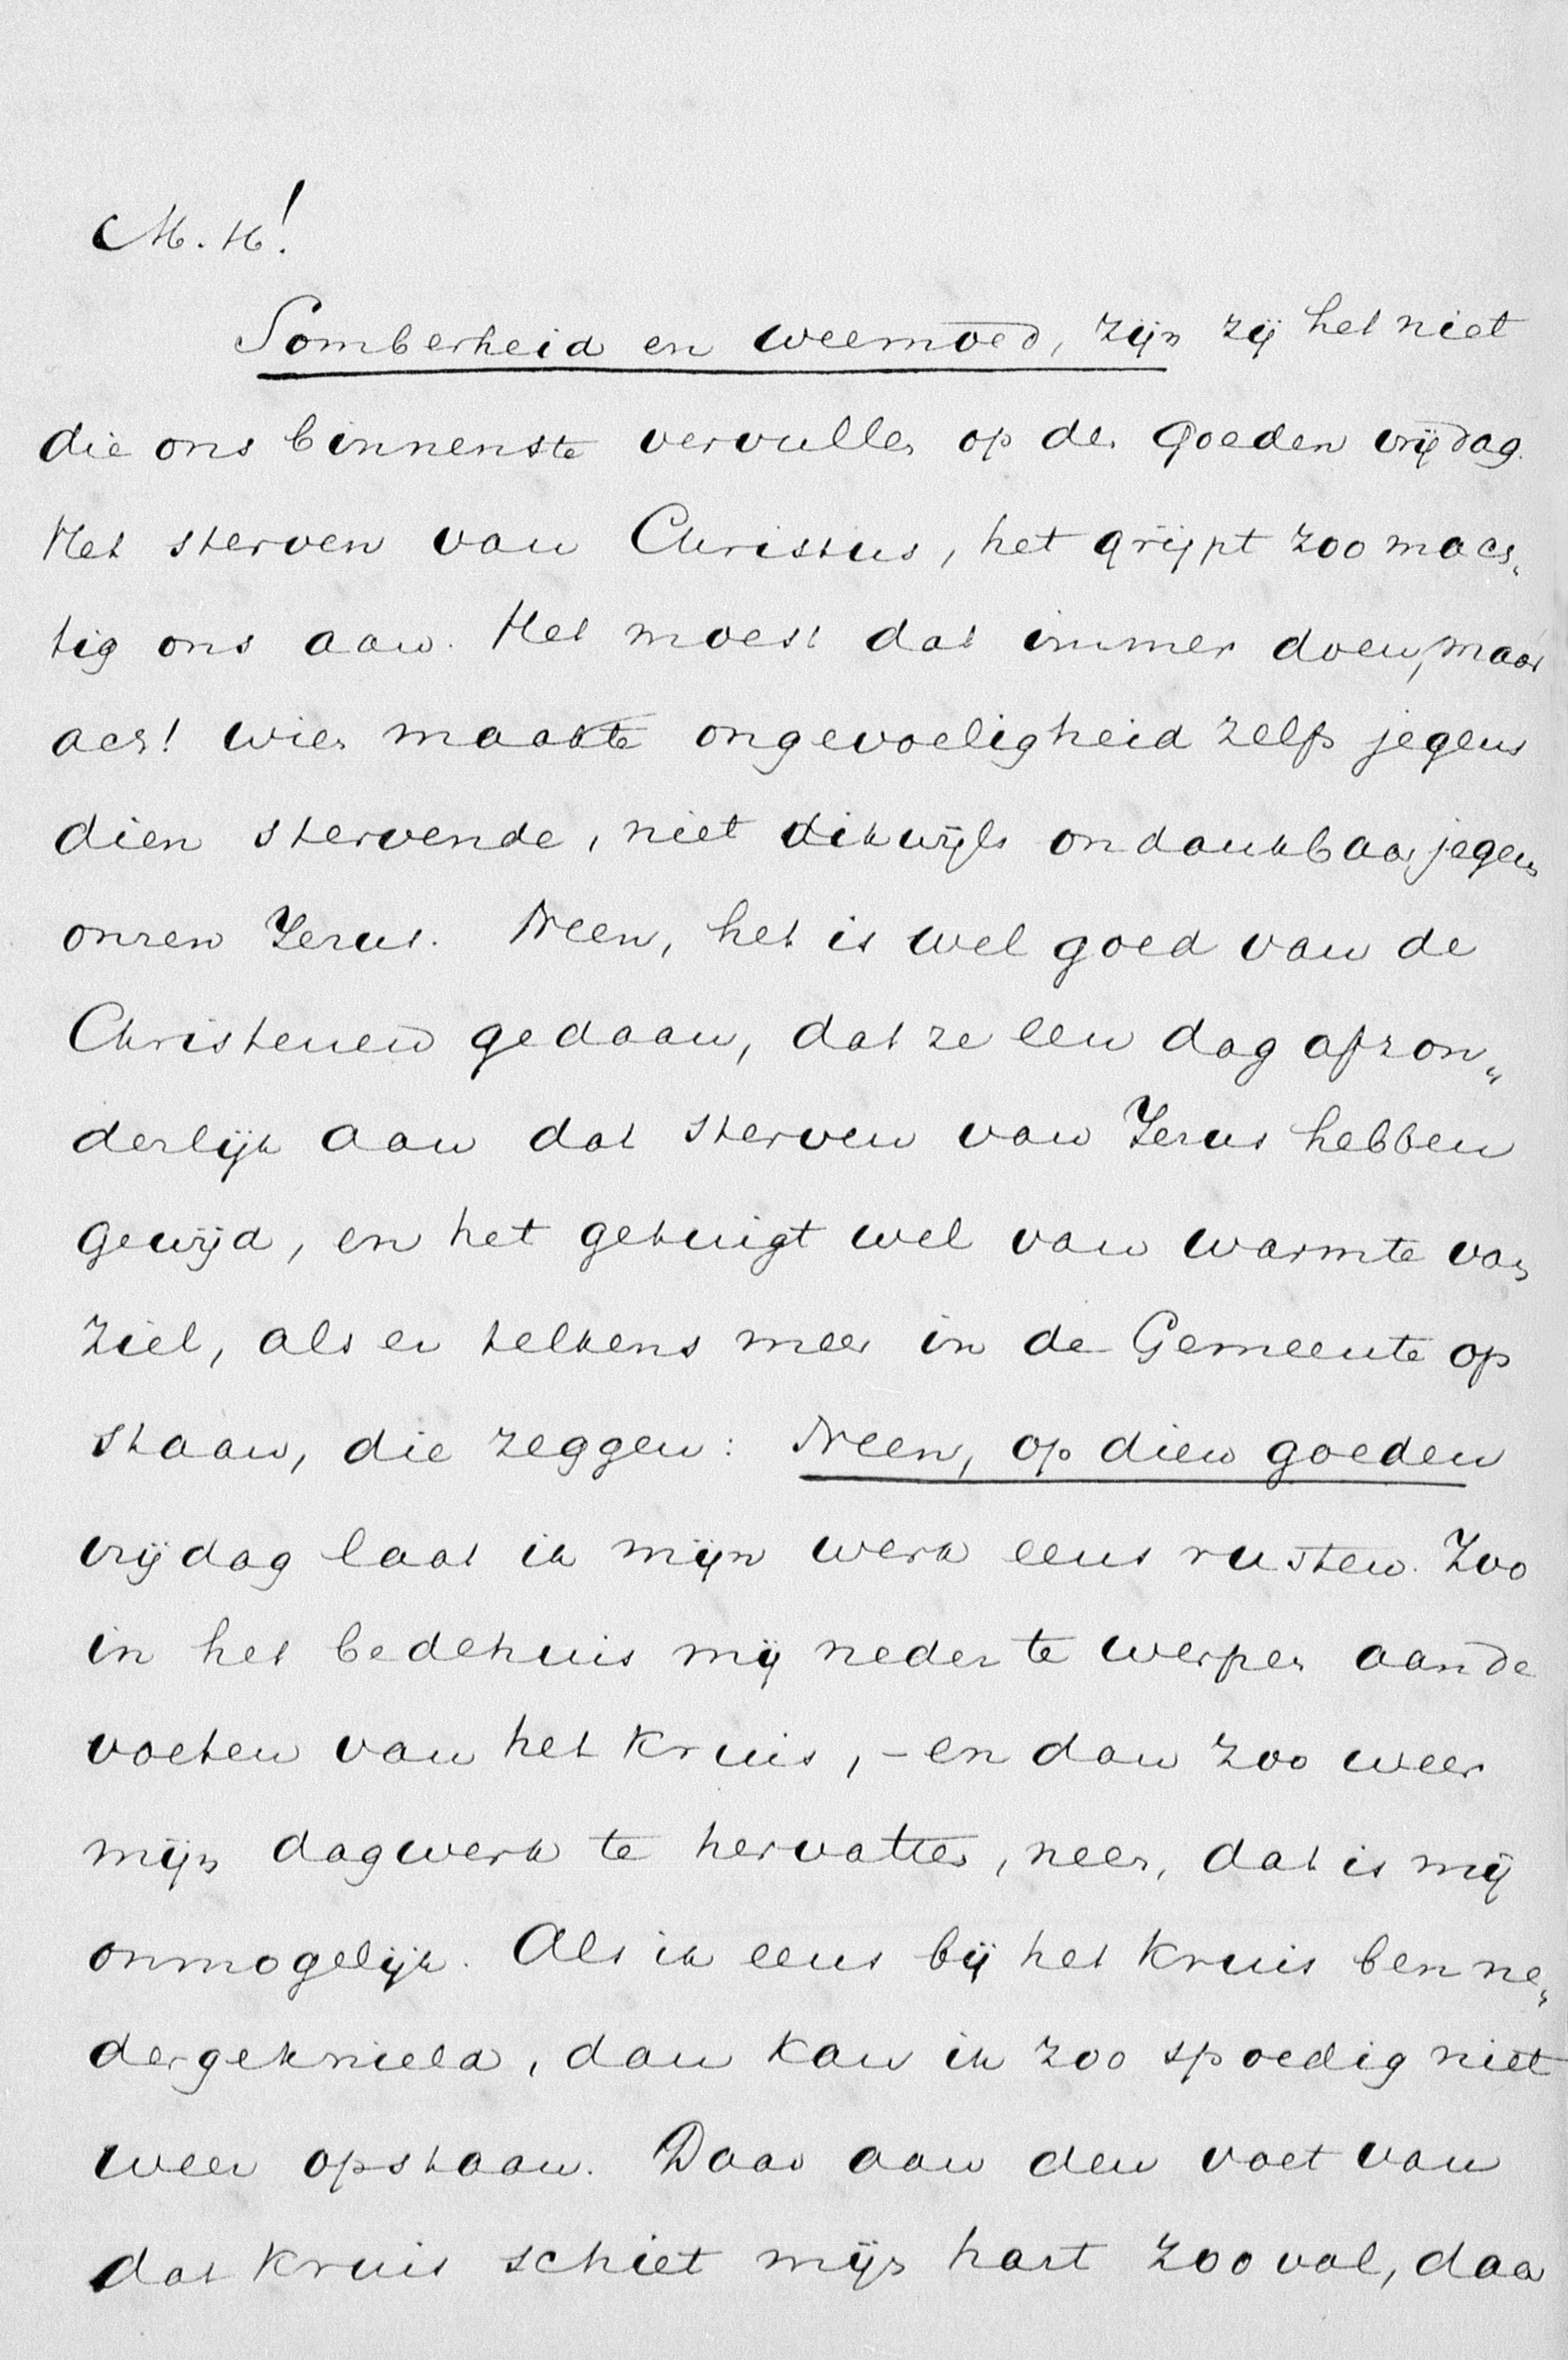 M. H!
Somberheid en weemoed, zijn zij het niet
die ons binnenste vervullen op den goeden vrijdag.
Het sterven van Christus, het grijpt zoo mach„
tig ons aan. Het moest dat immer doen, maar
ach! wien maakte ongevoeligheid zelfs jegens
dien stervende, niet dikwijls ondankbaar jegens
onzen Jezus. Neen, het is wel goed van de
Christenen gedaan, dat ze een dag afzon„
derlijk aan dat sterven van Jezus hebben
gewijd, en het getuigt wel van warmte van
ziel, als er telkens meer in de Gemeente op
staan, die zeggen: Neen, op dien goeden
vrijdag laat ik mijn werk eens rusten. Zoo
in het bedehuis mij neder te werpen aan de
voeten van het kruis, – en dan zoo weer
mijn dagwerk te hervatten, neen, dat is mij
onmogelijk. Als ik eens bij het kruis ben ne„
dergeknield, dan kan ik zoo spoedig niet
weer opstaan. Daar aan den voet van
dat kruis schiet mijn hart zoo vol, daar